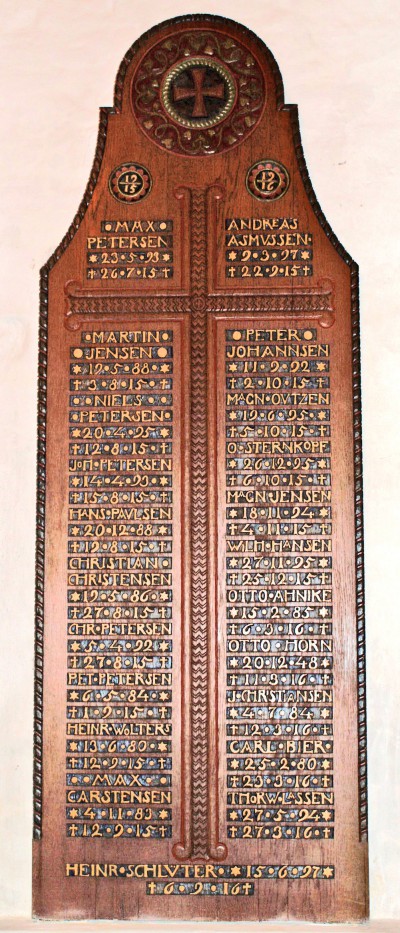 19
15
19
16
•MAX•
PETERSEN
✶23•5•93✶
✝26•7•15✝
•MARTIN•
•JENSEN•
✶12•5•88✶
✝3•8•15✝
•NIELS•
•PETERSEN•
✶20•4•95✶
✝12•8•15✝
JOH•PETERSEN
✶14•4•93✶
✝15•8•15✝
HANS•PAULSEN
✶20•12•88✶
✝12•8•15✝
CHRISTIAN•
CHRISTENSEN
✶19•5•86✶
✝27•8•15✝
CHR•PETERSEN
✶5•4•92✶
✝27•8•15✝
PET•PETERSEN
✶6•5•84✶
✝1•9•15✝
HEINR•WOLTERS
✶13•6•80✶
✝12•9•15✝
•MAX•
CARSTENSEN
✶4•11•83✶
✝12•9•15✝
ANDREAS
ASMUSSEN•
✶9•3•97✶
✝22•9•15✝
•PETER•
JOHANNSEN
✶11•9•92✶
✝2•10•15✝
MAGN•OVTZEN
✶19•6•95✶
✝5•10•15✝
O•STERNKOPF
✶26•12•95✶
✝6•10•15✝
MAGN•JENSEN
✶18•11•94✶
✝4•11•15✝
WILH•HANSEN
✶27•11•95✶
✝25•12•15✝
OTTO•AHNIKE
✶15•2•85✶
✝6•3•16✝
OTTO•HORN
✶20•12•48✶
✝11•3•16✝
J•CHRSTIANSEN
✶4•7•84✶
✝12•3•16✝
CARL•BIER•
✶25•2•80✶
✝23•3•16✝
THORW•LASSEN
✶27•5•94✶
✝27•3•16✝
HEINR•SCHLVTER•✶15•6•97✶
✝6•9•16✝